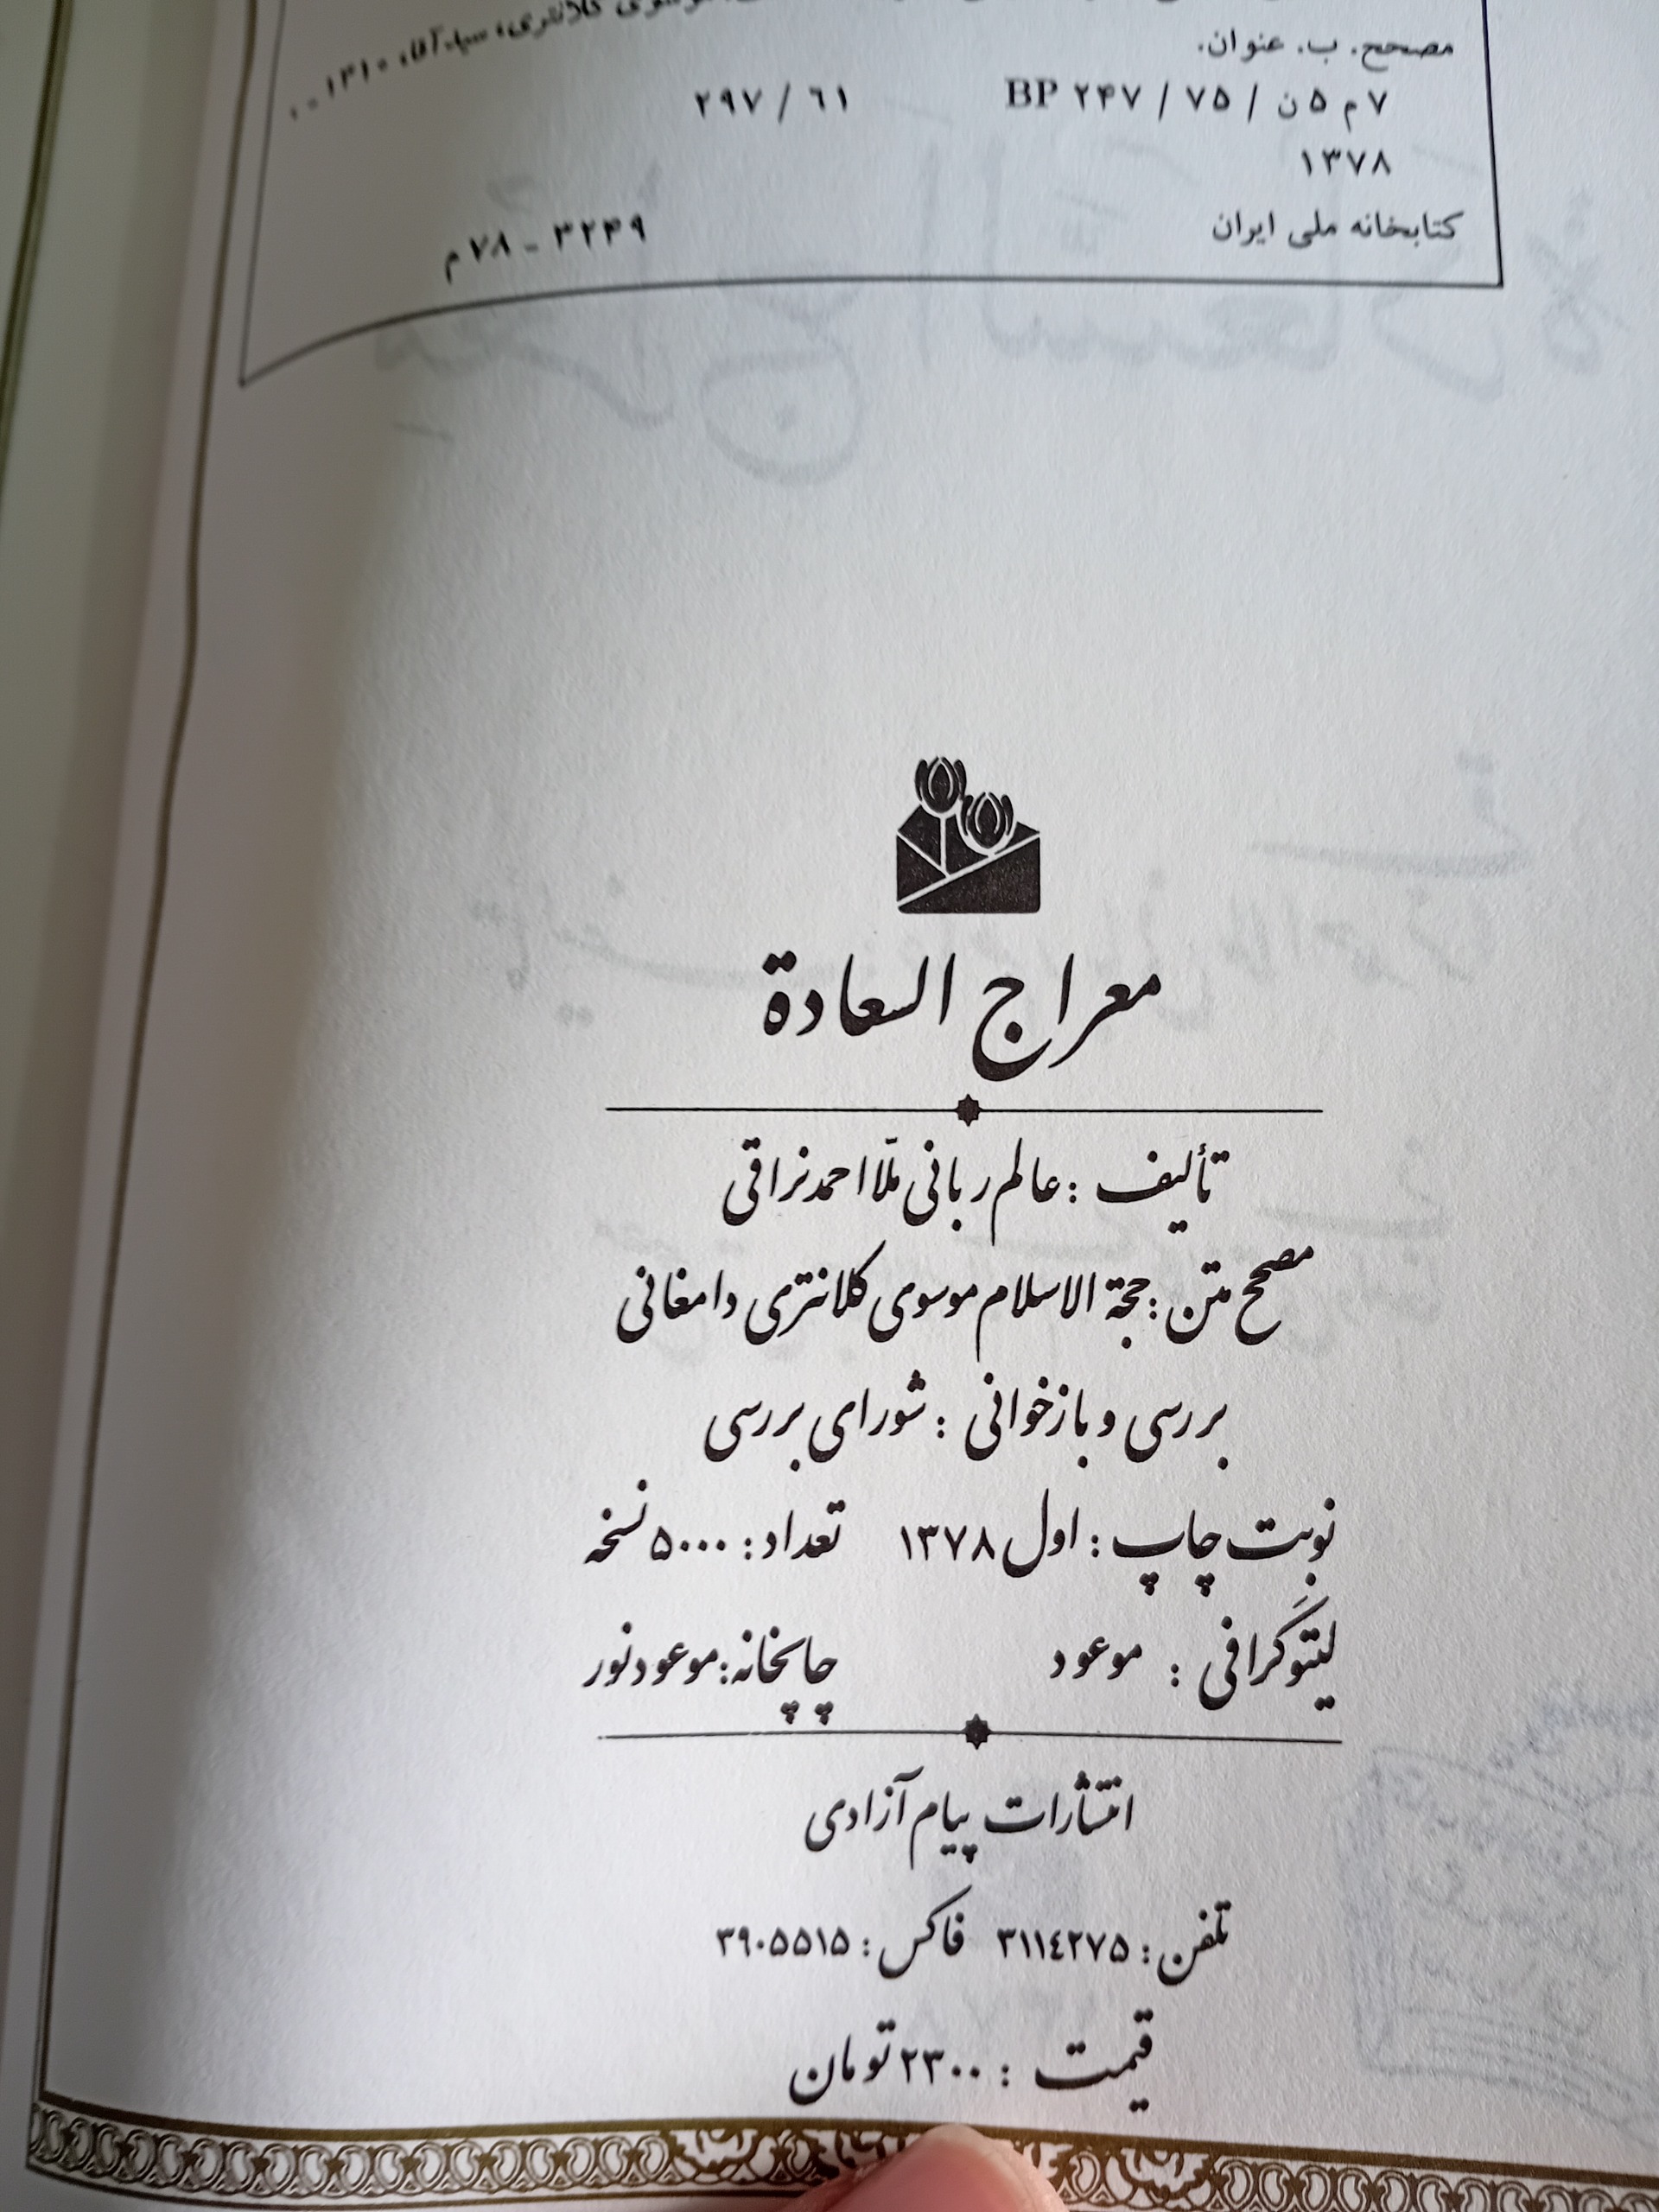 موسوی کلانتری، سیدآقا، ۱۳۱۰ - .
مصحح. ب. عنوان.
۷ م ۵ ن / ۷۵ / ۲۴۷ BP ۶۱ / ۲۹۷
۱۳۷۸
کتابخانه ملی ایران ۳۲۴۹ - ۷۸ م
معراج السعادة
تألیف : عالم ربانی ملّا احمد نراقی
مصحح متن : حجة الاسلام موسوی کلانتری دامغانی
بررسی و بازخوانی : شورای بررسی
نوبت چاپ : اول ۱۳۷۸ تعداد : ۵۰۰۰ نسخه
لیتوگرافی : موعود چاپخانه : موعود نور
انتشارات پیام آزادی
تلفن : ۳۱۱٤۲۷۵ فاکس : ۳۹۰۵۵۱۵
قیمت : ۲۳۰۰ تومان